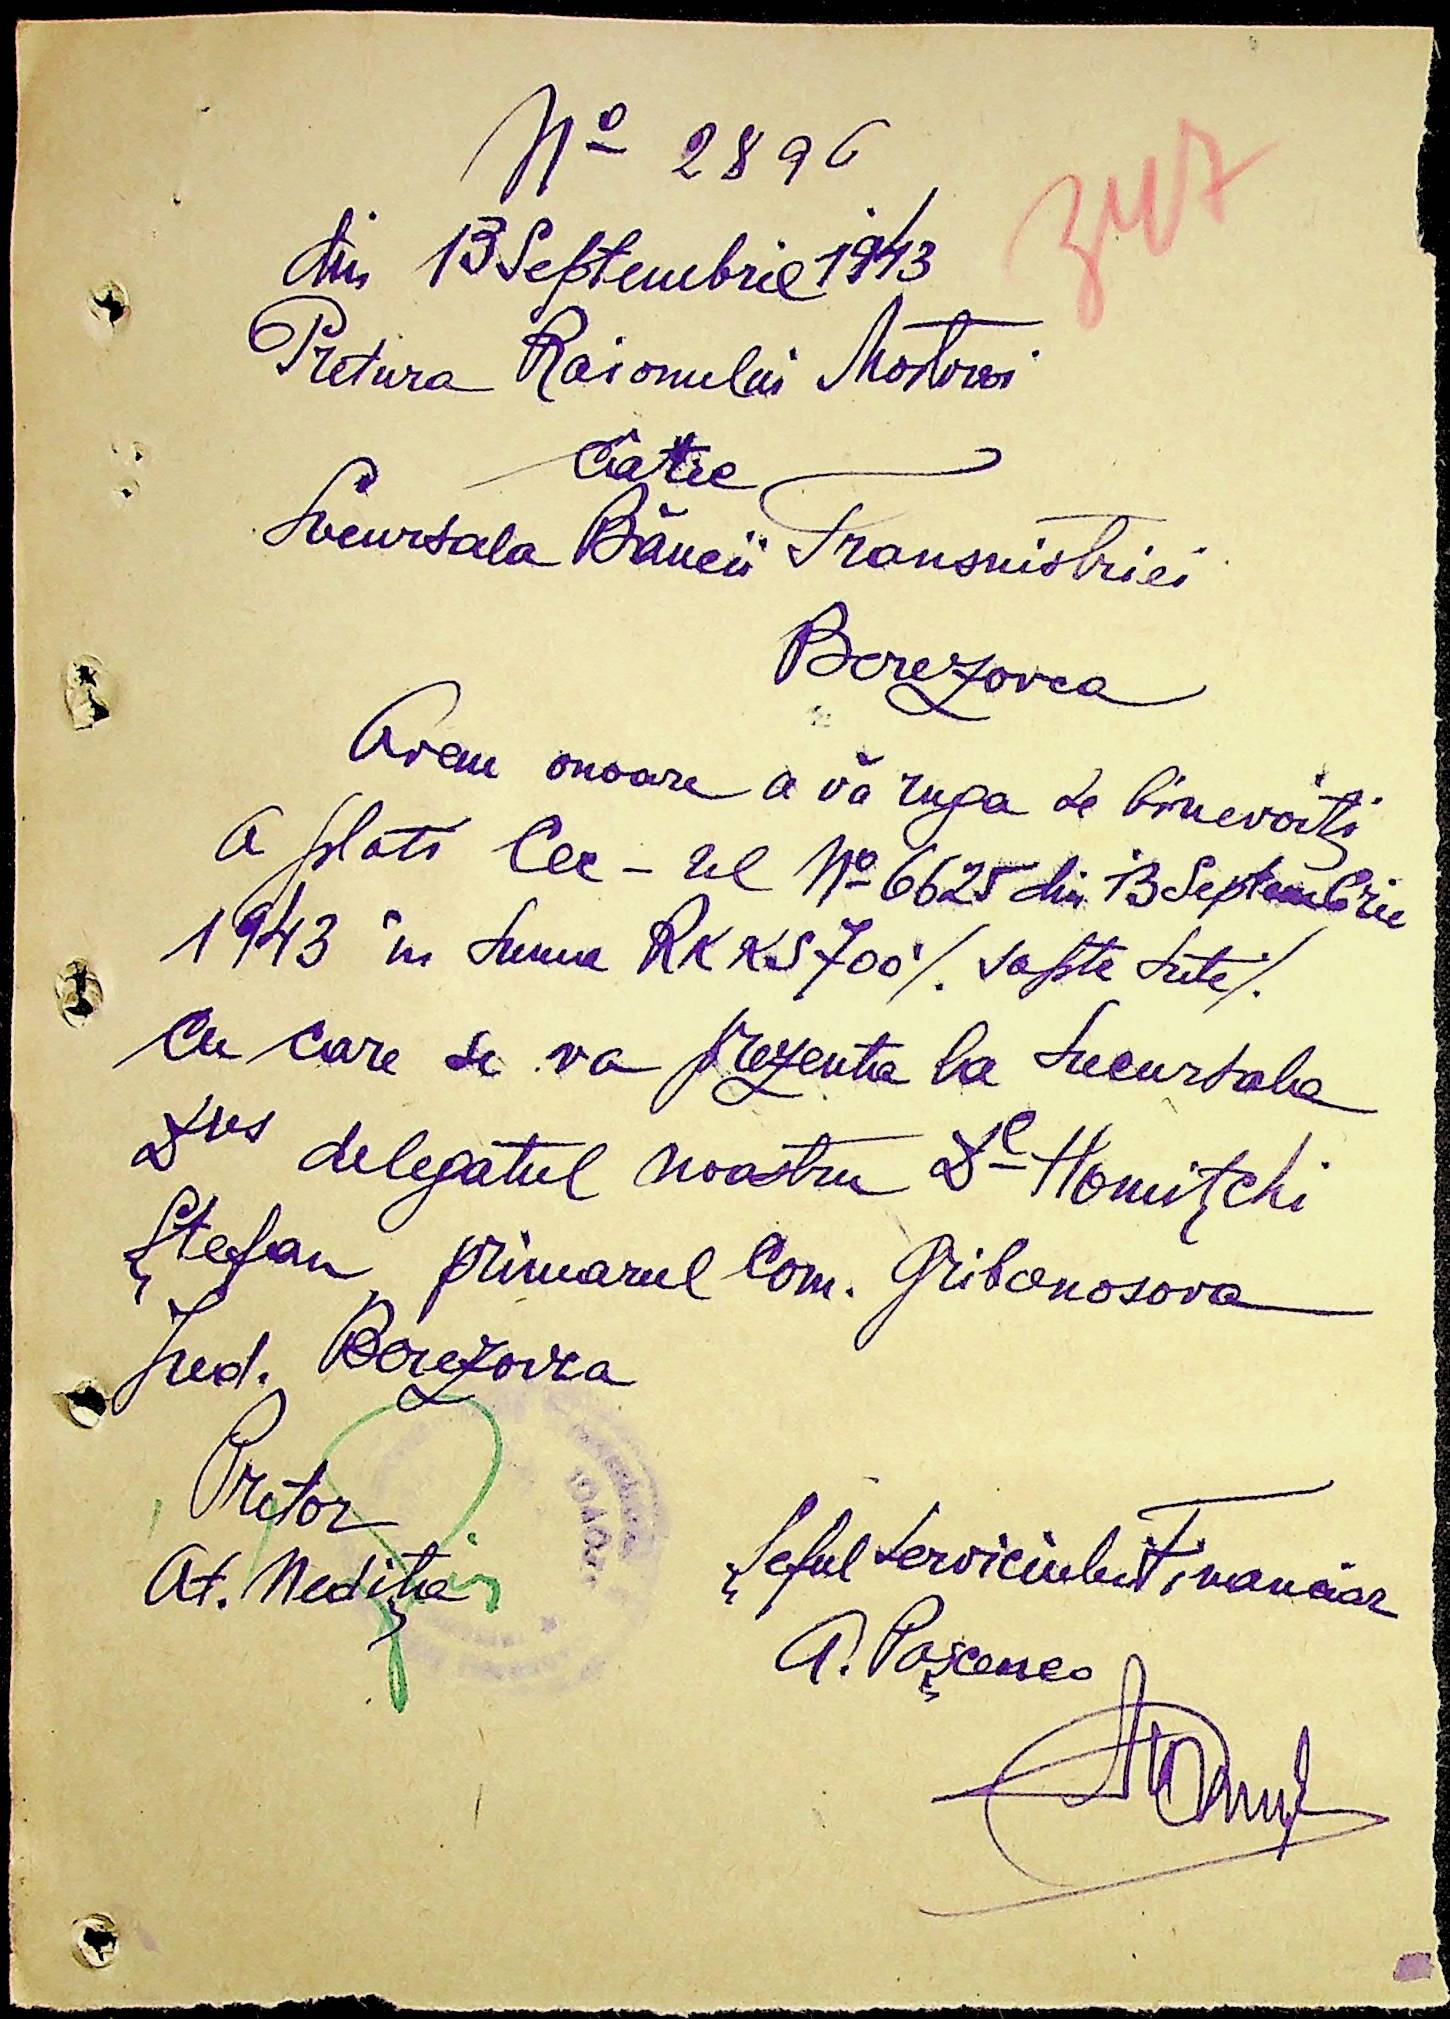 Nº 2896
347
din 13 Septembrie 1943
Pretura Raionului Mostovoi
Către
Sucursala Băncii Transnistriei
Berezovca
Avem onoare a vă ruga se binevoiți
a plati Cec-ul Nº 6625 din 13 Septembrie
1943 în suma RKKS 700/. șapte sute/.
cu care se va prezenta la sucursala
Dvs delegatul nostru Dl Homițchi
Ștefan primarul Com. Gribanosova
Jud. Berezovca
Pretor
At. Nedița
Șeful Serviciului Financiar
A. Pașcenco